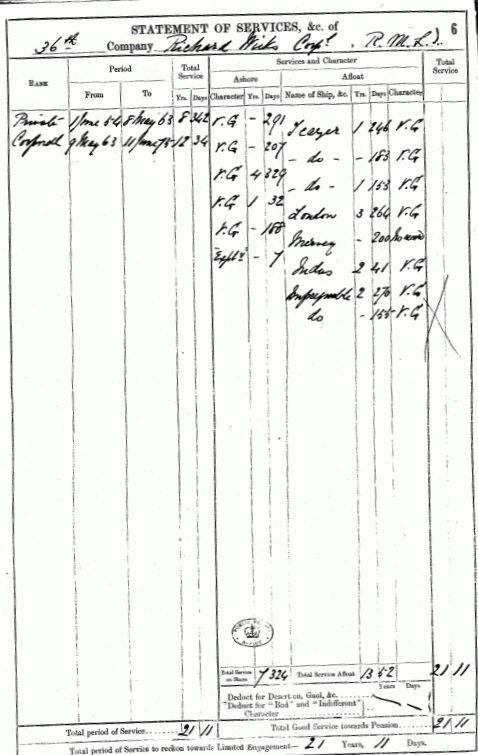 STATEMENT OF SERVICES, &c. of 6
36th Company Richard Wicks Corpl. R. M. L. I.
RANK Period Total Service Services and Character Total Service
Ashore Afloat
From To Yrs. Days Character Yrs. Days Name of Ship, &c. Yrs. Days Character
Private 1 June 54 8 May 63 8 342 V.G - 291 Teazer 1 246 V.G
Corporal 9 May 63 11 June 75 12 34 V.G - 207 - do - - 183 V.G
V.G 4 329 - do - 1 153 V.G
V.G 1 32 London 3 264 V.G
V.G - 188 Mersey - 200 No record
"Exply" - 7 Indus 2 41 V.G
Impregnable 2 270 V.G
do - 155 V.G
Total Service on Shore 7 324 Total Service Afloat 13 52 21 11
Years Days
Deduct for Desertion, Gaol, &c.
"Deduct for "Bad" and "Indifferent" Character
Total period of Service 21 11 Total Good Service towards Pension 21 11
Total period of Service to reckon towards Limited Engagement— 21 Years, 11 Days.